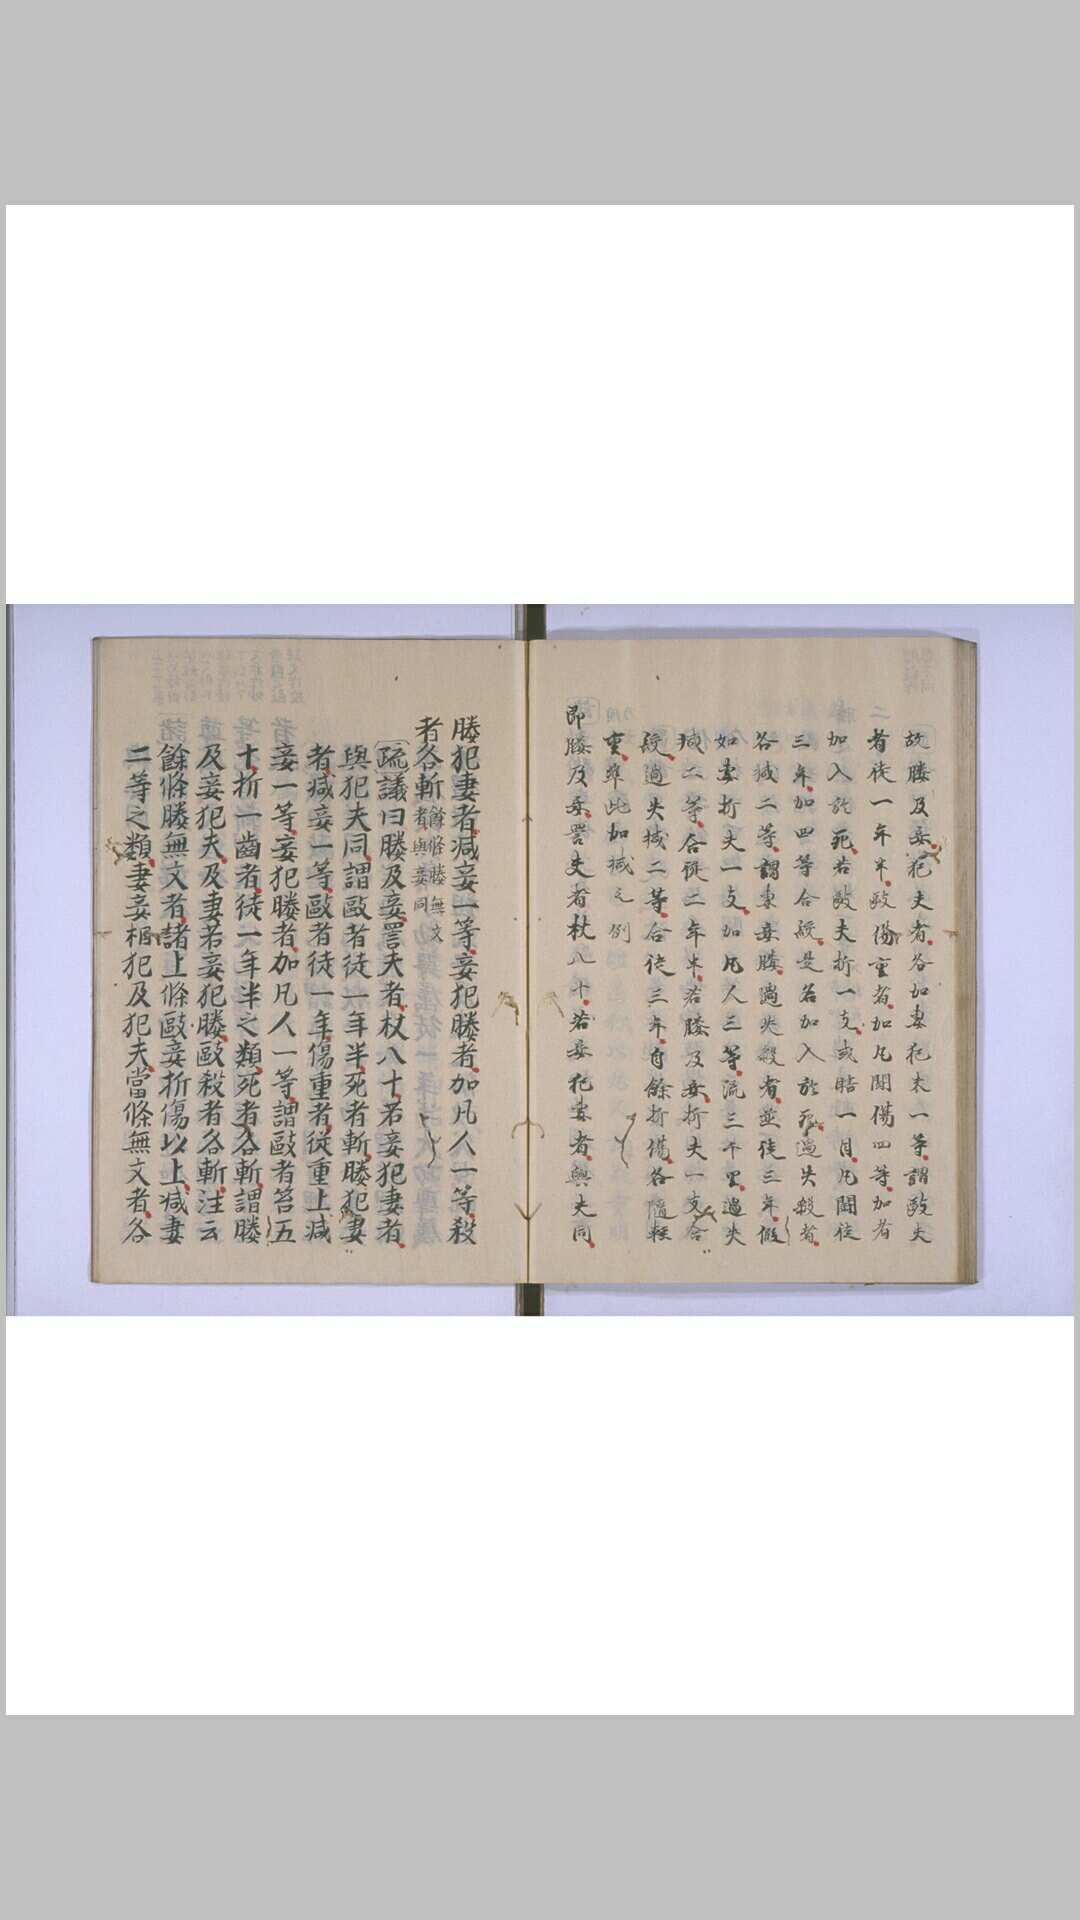 故媵及妾犯夫者各加妻犯夫一等謂毆夫
者徒一年半毆傷重者加凡鬪傷四等加者
加入於死若毆夫折一支或瞎一目凡鬪徒
三年加四等合絞是名加入於死過失殺者
各減二等謂妻妾媵過失殺者並徒三年假
如妻折夫一支加凡人三等流三千里過失
減二等合徒二年半若媵及妾折夫一支合
絞過失減二等合徒三年自餘折傷各隨輕
重準此加減之例
即媵及妾詈夫者杖八十若妾犯妻者與夫同
媵犯妻者減妾一等妾犯媵者加凡人一等殺
者各斬餘條媵無文者與妾同
疏議曰媵及妾詈夫者杖八十若妾犯妻者
與犯夫同謂毆者徒一年半死者斬媵犯妻
者減妾一等毆者徒一年傷重者從重上減
妾一等妾犯媵者加凡人一等謂毆者笞五
十折一齒者徒一年半之類死者各斬謂媵
及妾犯夫及妻若妾犯媵毆殺者各斬注云
餘條媵無文者諸上條毆妾折傷以上減妻
二等之類妻妾相犯及犯夫當條無文者各